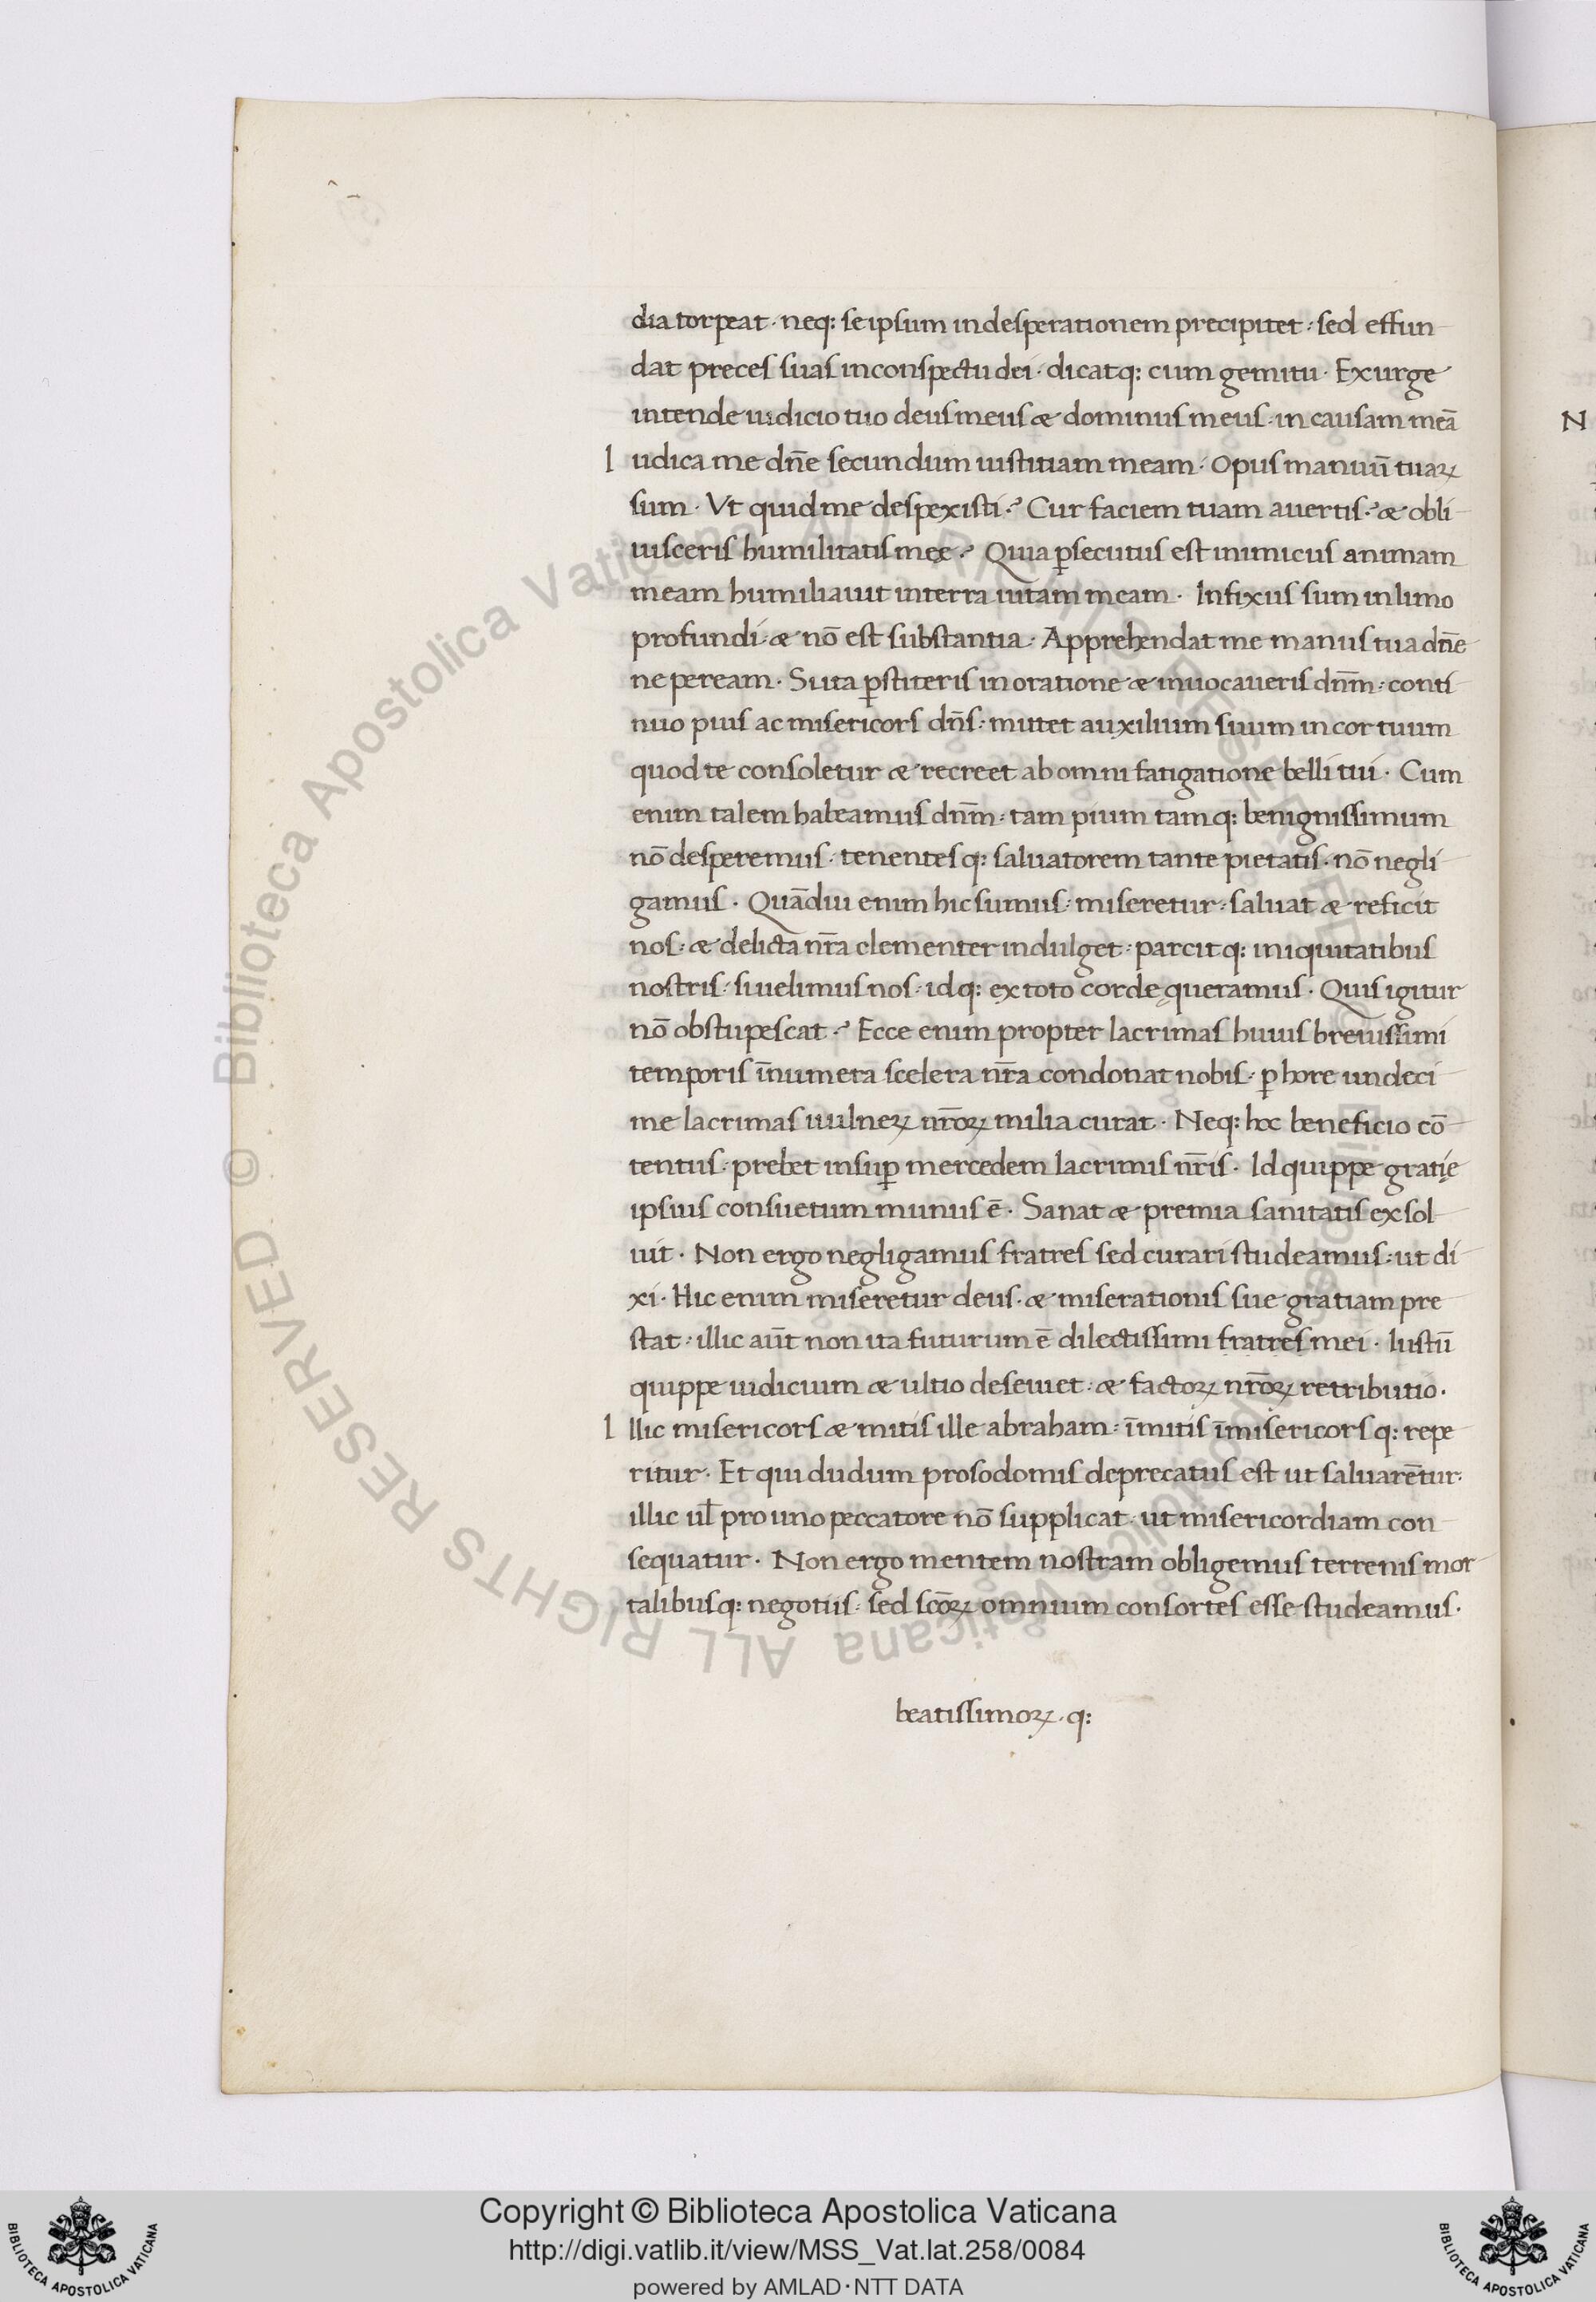 dia torpeat · neq: se ipsum in desperationem precipitet : sed effun
dat preces suas in conspectu dei · dicatq: cum gemitu · Exurge
intende iudicio tuo deus meus æ dominus meus · in causam meā
Iudica me dn̄e secundum iustitiam meam · Opus manuū tuaꝝ
sum · Vt quid me despexisti ? Cur faciem tuam auertis ? æ obli
uisceris humilitatis meę ? Quia ꝑsecutus est inimicus animam
meam humiliauit in terra uitam meam · Infixus sum in limo
profundi · æ nō est substantia · Apprehendat me manus tua dn̄e
ne peream · Si ita ꝑstiteris in oratione æ inuocaueris dn̄m : conti
nuo pius ac misericors dn̄s : mittet auxilium suum in cor tuum
quod te consoletur æ recreet ab omni fatigatione belli tui · Cum
enim talem habeamus dn̄m : tam pium tamq: benignissimum
nō desperemus · tenentesq: saluatorem tante pietatis · nō negli
gamus · Quādiu enim hic sumus : miseretur : saluat æ reficit
nos : æ delicta nr̄a clementer indulget : parcitq: iniquitatibus
nostris : si uelimus nos : idq: ex toto corde quęramus · Quis igitur
nō obstupescat ? Ecce enim propter lacrimas huius breuissimi
temporis īnumera scelera nr̄a condonat nobis · ꝑ hore undeci
me lacrimas uulneꝝ nr̄oꝝ milia curat · Neq: hoc beneficio cō
tentus : prebet insuꝑ mercedem lacrimis nr̄is · Id quippe gratię
ipsius consuetum munus ē · Sanat æ premia sanitatis exsol
uit · Non ergo negligamus fratres sed curari studeamus : ut di
xi · Hic enim miseretur deus · æ miserationis sue gratiam pre
stat : illic aūt non ita futurum ē dilectissimi fratres mei · Iustū
quippe iudicium æ ultio deseuiet : æ factoꝝ nr̄oꝝ retributio ·
Illic misericors æ mitis ille abraham : īmitis īmisericorsq: repe
ritur · Et qui dudum pro sodomis deprecatus est ut saluarētur :
illic ul̄ pro uno peccatore nō supplicat · ut misericordiam con
sequatur · Non ergo mentem nostram obligemus terrenis mor
talibusq: negotiis : sed scōꝝ omnium consortes esse studeamus ·
beatissimoꝝ · q:
N
© Biblioteca Apostolica Vaticana ALL RIGHTS RESERVED
© Biblioteca Apostolica Vaticana ALL RIGHTS RESERVED
Copyright © Biblioteca Apostolica Vaticana
http://digi.vatlib.it/view/MSS_Vat.lat.258/0084
powered by AMLAD·NTT DATA
BIBLIOTECA APOSTOLICA VATICANA
BIBLIOTECA APOSTOLICA VATICANA